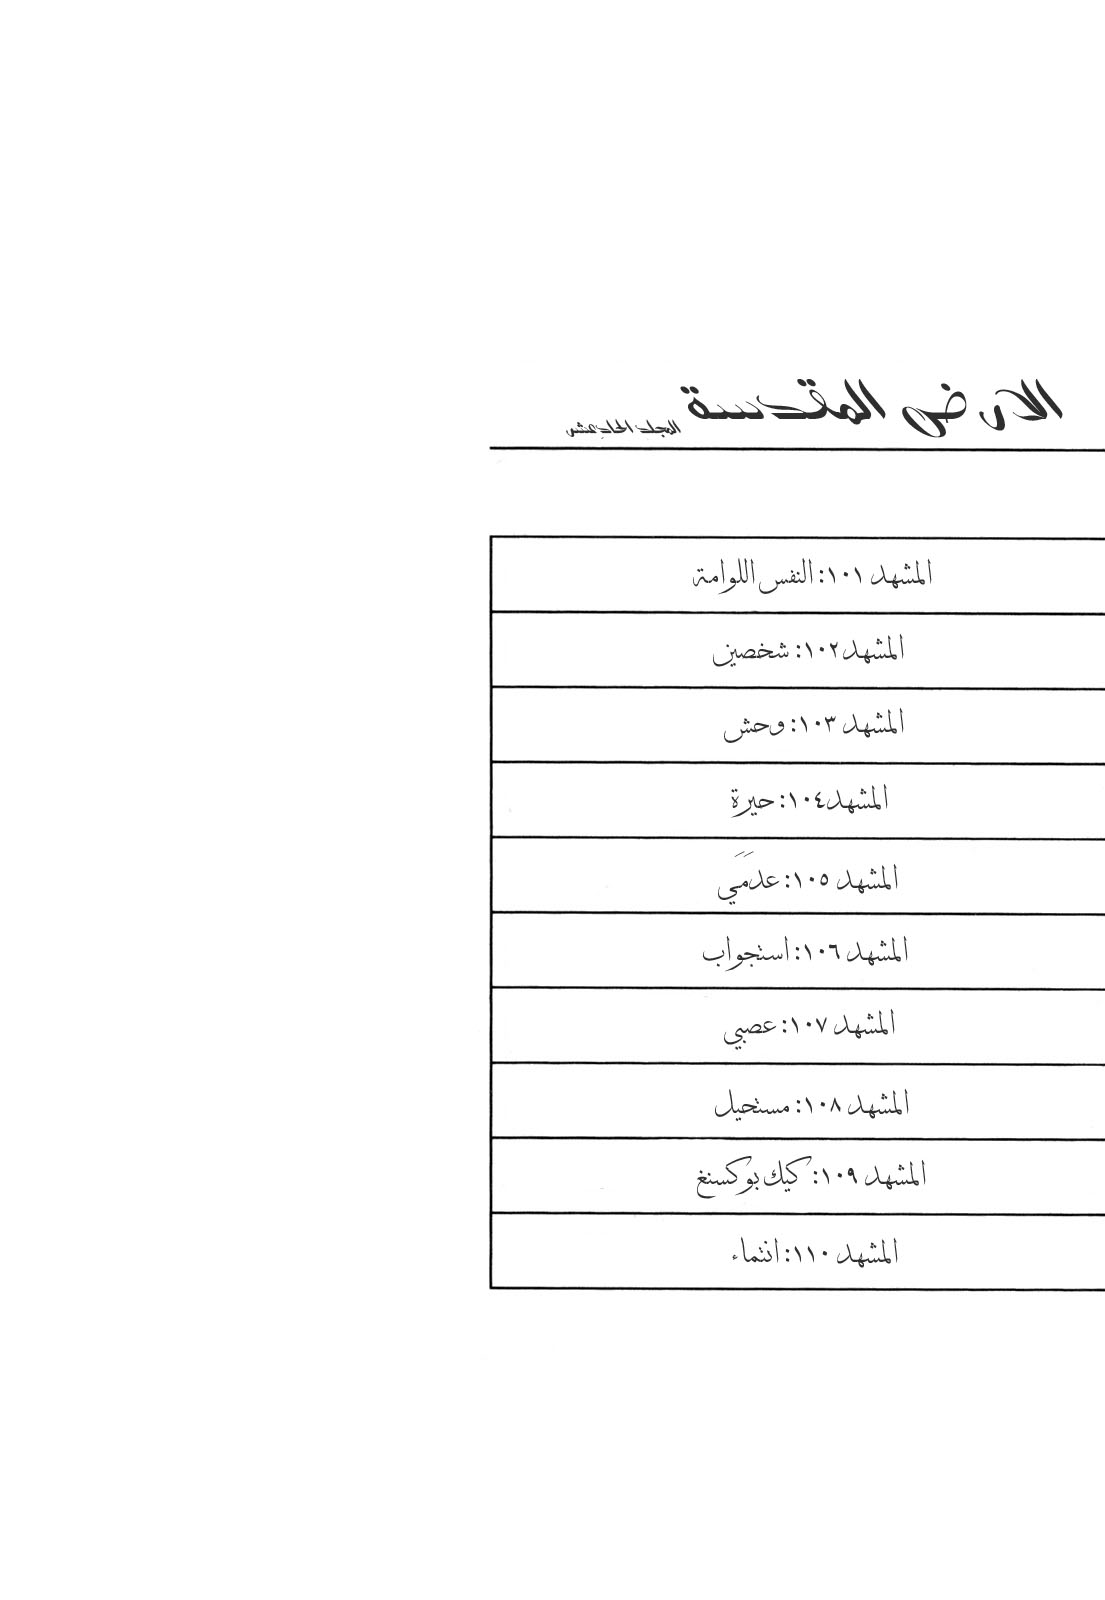 الارض المقدسة المجلد الحادي عشر
المشهد ١٠١: النفس اللوامة
المشهد ١٠٢: شخصين
المشهد ١٠٣: وحش
المشهد ١٠٤: حيرة
المشهد ١٠٥: عدَمَي
المشهد ١٠٦: استجواب
المشهد ١٠٧: عصبي
المشهد ١٠٨: مستحيل
المشهد ١٠٩: كيك بوكسنغ
المشهد ١١٠: انتماء